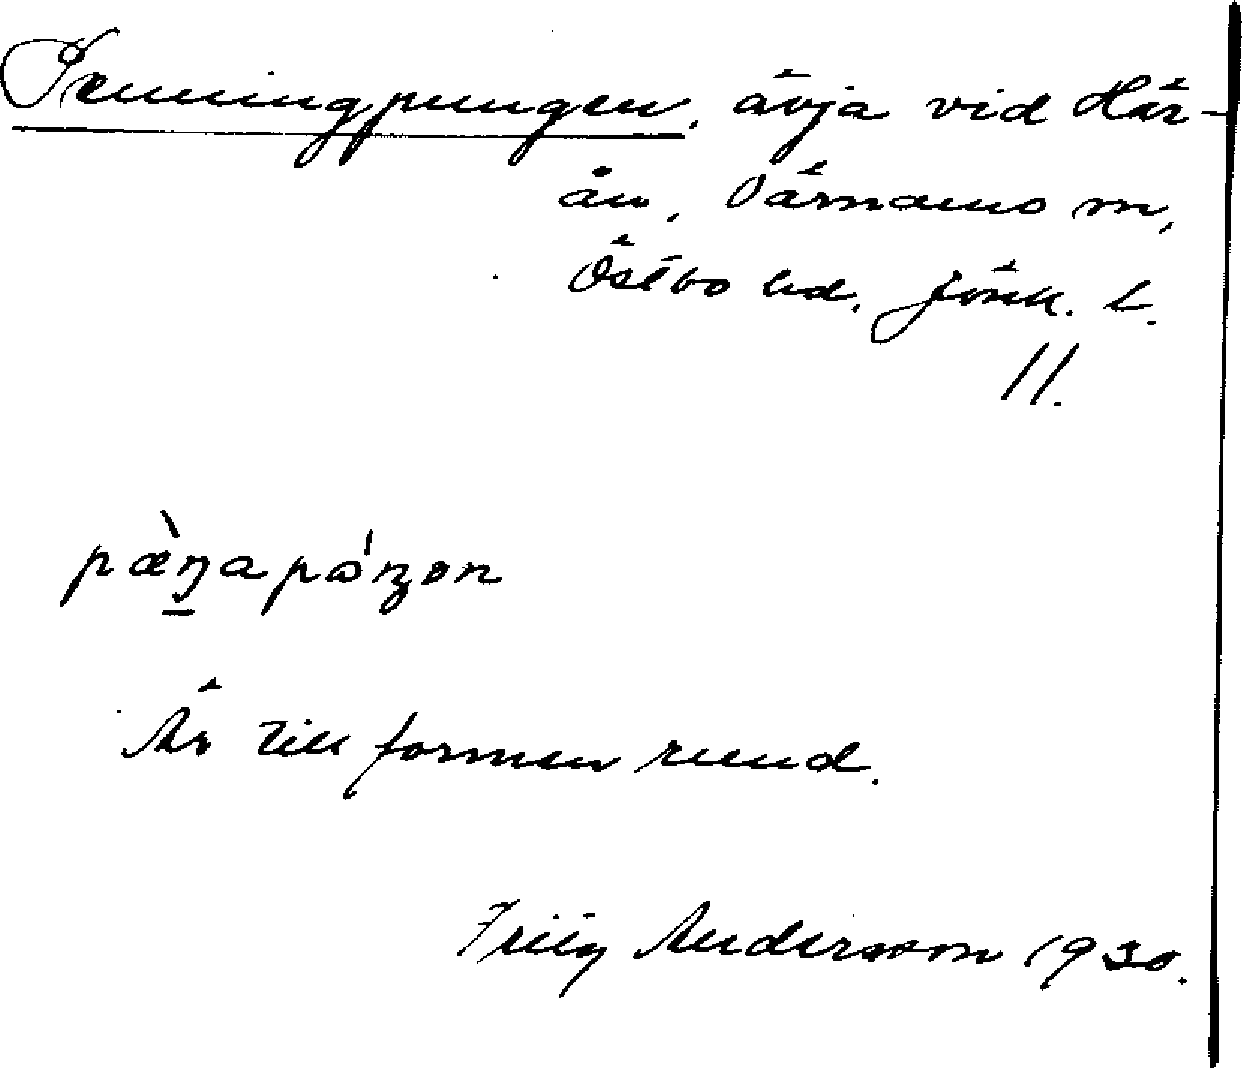 Penningpungen, ävja vid Här-
ån, Värnamo sn,
Östbo hd, Jönk. l.
11.
pæ̀ŋapɷ́ŋən
Är till formen rund.
Andersson 1930.